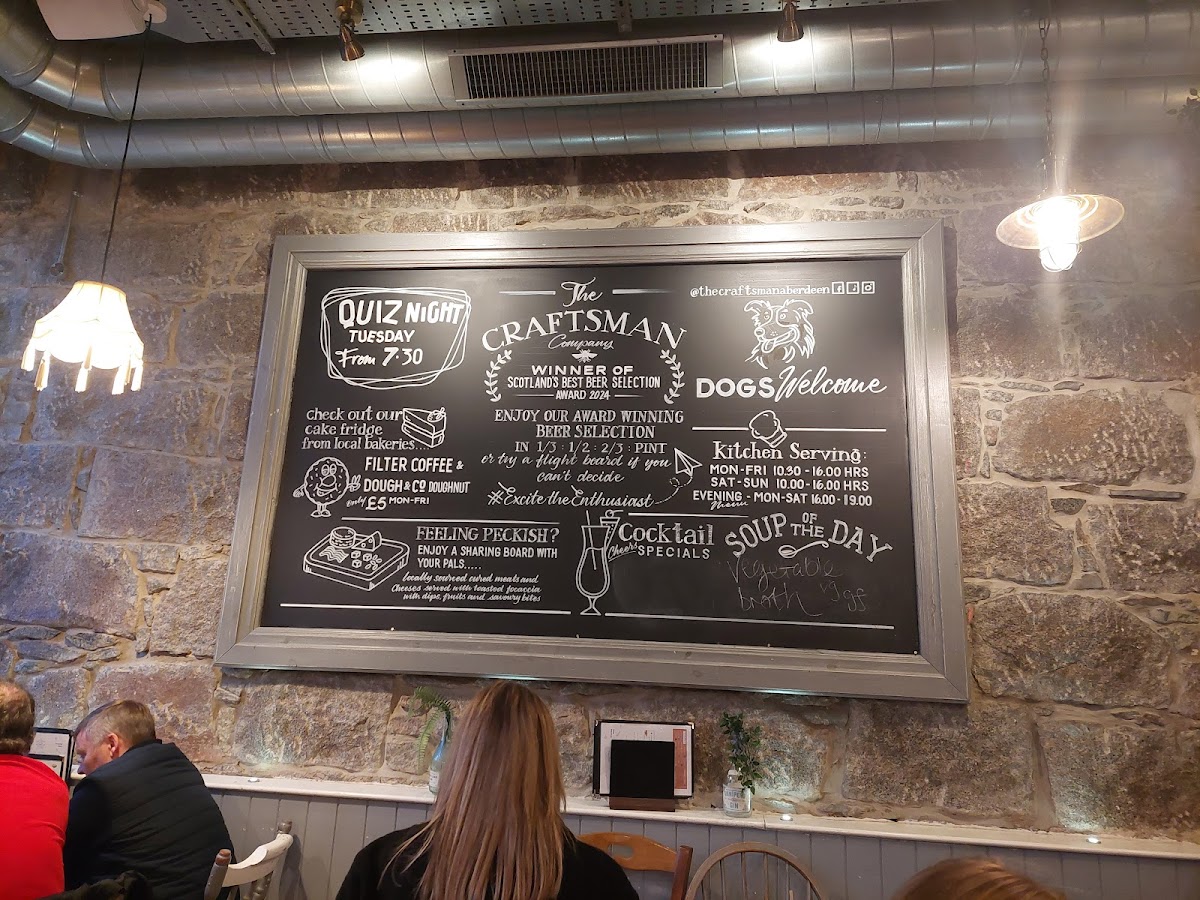 QUIZ NIGHT
TUESDAY
From 7·30
check out our
cake fridge
from local bakeries...
FILTER COFFEE &
DOUGH & CO DOUGHNUT
only £5 MON-FRI
The
CRAFTSMAN
Company
WINNER OF
SCOTLAND'S BEST BEER SELECTION
AWARD 2024
ENJOY OUR AWARD WINNING
BEER SELECTION
IN 1/3 : 1/2 : 2/3 : PINT
or try a flight board if you
can't decide
#ExcitetheEnthusiast
@thecraftsmanaberdeen
DOGS Welcome
Kitchen Serving:
MON-FRI 10.30 - 16.00 HRS
SAT-SUN 10.00 - 16.00 HRS
EVENING Menu - MON-SAT 16.00 - 19.00
FEELING PECKISH?
ENJOY A SHARING BOARD WITH
YOUR PALS.....
locally sourced cured meats and
Cheeses served with toasted focaccia
with dips, fruits and savoury bites
Cocktail
Cheers SPECIALS
SOUP OF THE DAY
Vegetable
broth